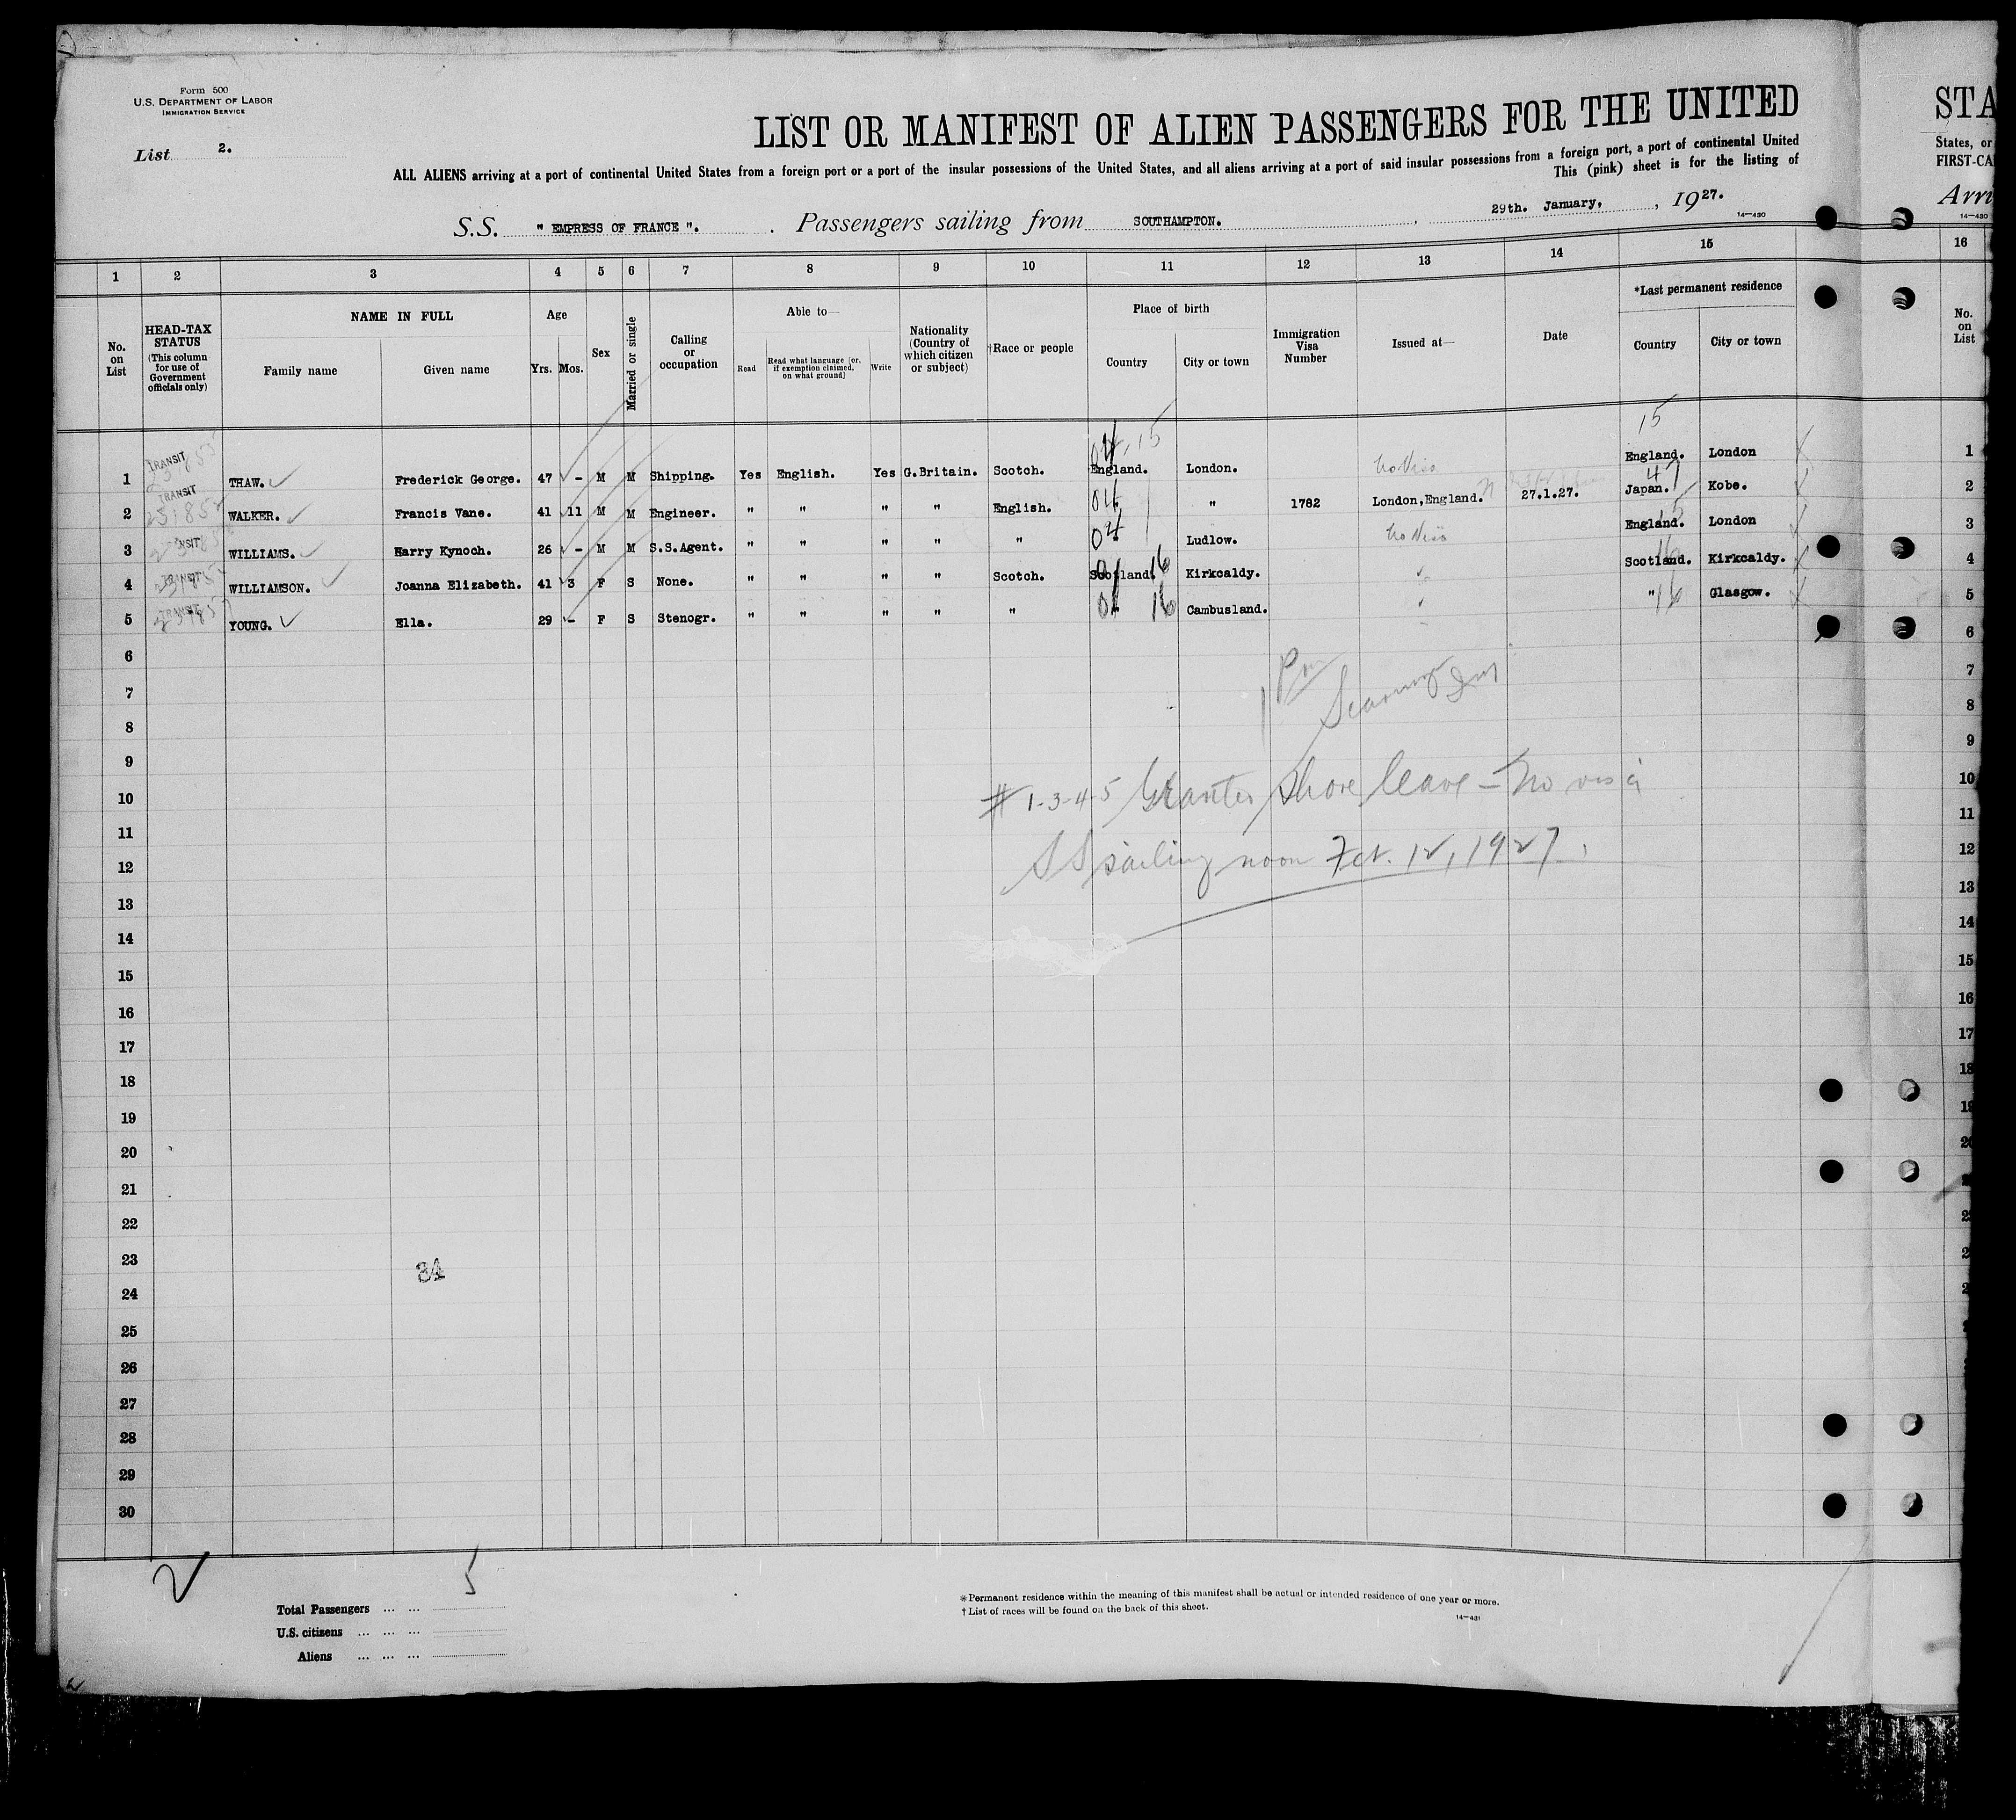 Form 500
U.S. DEPARTMENT OF LABOR
IMMIGRATION SERVICE
List 2.
LIST OR MANIFEST OF ALIEN PASSENGERS FOR THE UNITED STA
ALL ALIENS arriving at a port of continental United States from a foreign port or a port of the insular possessions of the United States, and all aliens arriving at a port of said insular possessions from a foreign port, a port of continental United States, or
This (pink) sheet is for the listing of FIRST-CA
S.S. " EMPRESS OF FRANCE ". Passengers sailing from SOUTHAMPTON. , 29th. January, , 1927. Arri
14-430 14-430
1 2 3 4 5 6 7 8 9 10 11 12 13 14 15 16
No. on List
HEAD-TAX STATUS (This column for use of Government officials only)
NAME IN FULL
Family name Given name
Age
Yrs. Mos.
Sex
Married or single
Calling or occupation
Able to—
Read Read what language [or, if exemption claimed, on what ground] Write
Nationality (Country of which citizen or subject)
†Race or people
Place of birth
Country City or town
Immigration Visa Number
Issued at—
Date
*Last permanent residence
Country City or town
No. on List
04,15 15
1 TRANSIT THAW. Frederick George. 47 - M M Shipping. Yes English. Yes G.Britain. Scotch. England. London. No Visa England. London 1
2 TRANSIT WALKER. Francis Vane. 41 11 M M Engineer. " " " " English. 04 " 1782 London,England. 27.1.27. Japan. 47 Kobe. 2
3 WILLIAMS. Harry Kynoch. 26 - M M S.S.Agent. " " " " " 04 Ludlow. No Visa England. London 3
4 TRANSIT WILLIAMSON. Joanna Elizabeth. 41 3 F S None. " " " " Scotch. Scotland. 16 Kirkcaldy. Scotland. 16 Kirkcaldy. 4
5 TRANSIT YOUNG. Ella. 29 - F S Stenogr. " " " " " 04 16 Cambusland. " 16 Glasgow. 5
6 6
7 7
8 8
9 9
# 1-3-4-5 Granted shore leave - No visa
10 10
11 11
SS sailing noon Feb. 12, 1927.
12 12
13 13
14 14
15 15
16 16
17 17
18 18
19 19
20 20
21
22
23
84
24
25
26
27
28
29
30
2 5
Total Passengers ... ...
U.S. citizens ... ... ...
Aliens ... ... ...
*Permanent residence within the meaning of this manifest shall be actual or intended residence of one year or more.
†List of races will be found on the back of this sheet.
14-431